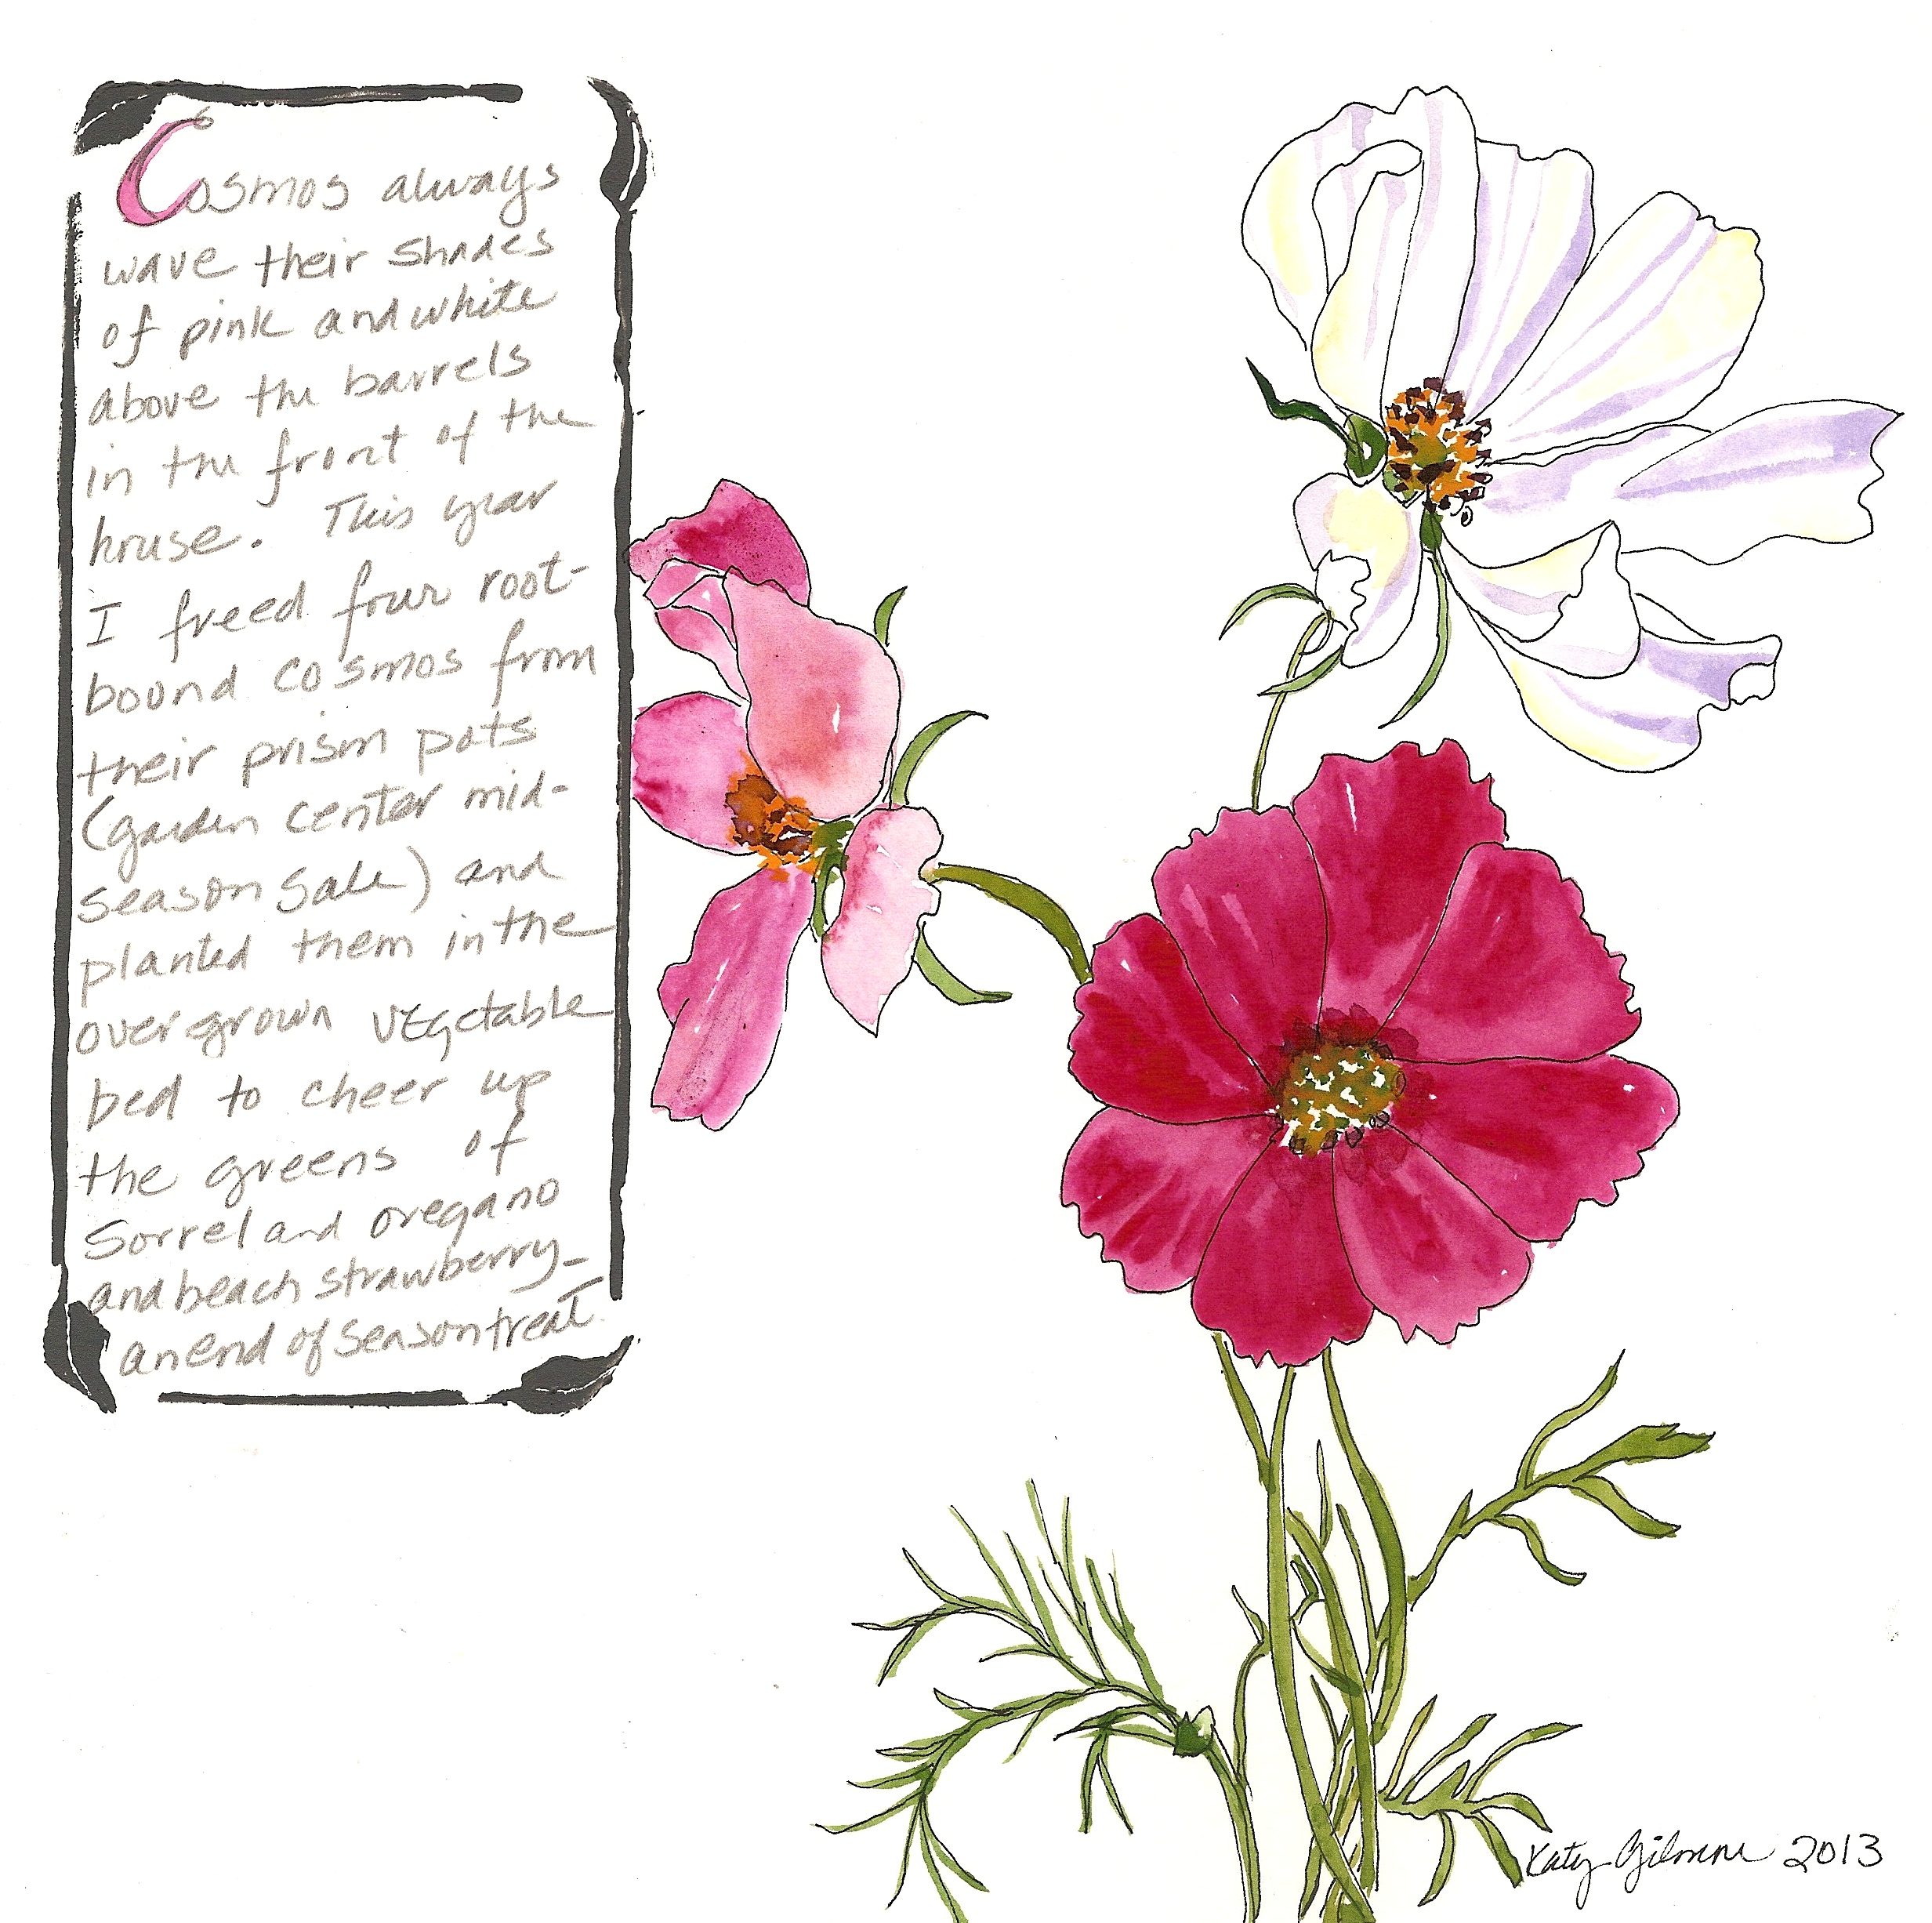 Cosmos always
wave their shades
of pink and white
above the barrels
in the front of the
house. This year
I freed four root-
bound cosmos from
their prism pots
(garden center mid-
season sale) and
planted them in the
overgrown vegetable
bed to cheer up
the greens of
Sorrel and oregano
and beach strawberry–
an end of season treat.
Katy Gilmore 2013